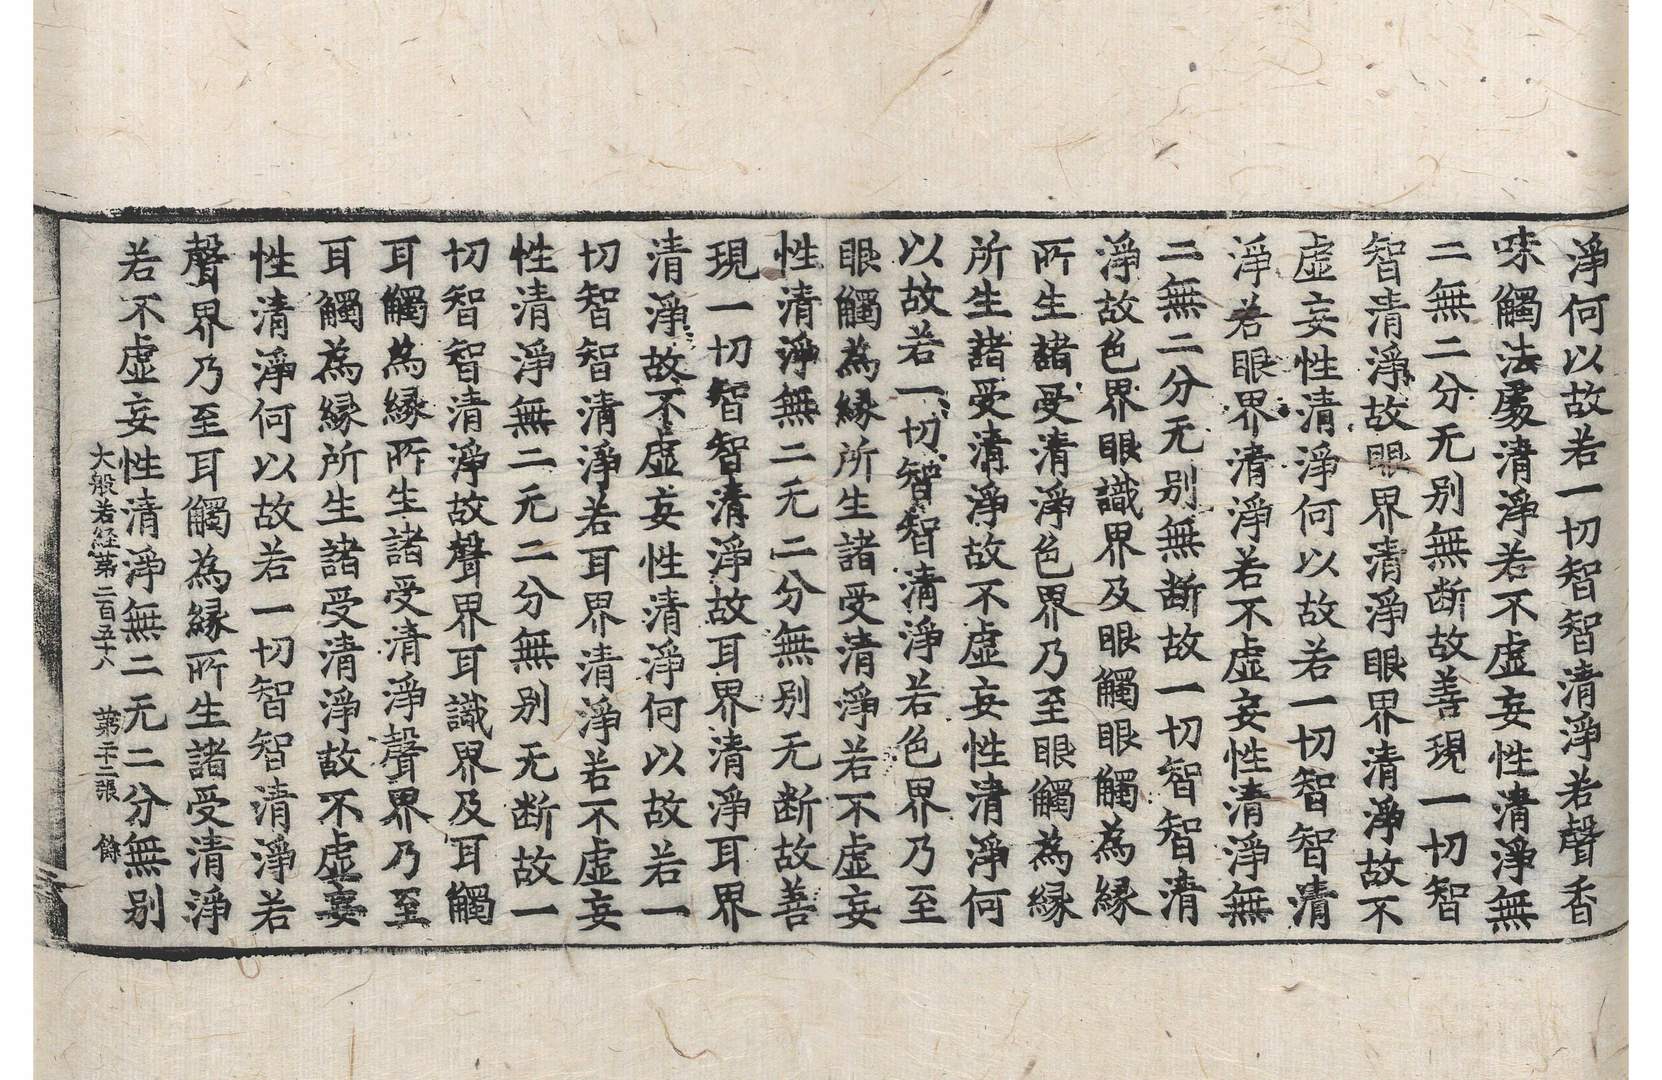 淨何以故若一切智智清淨若聲香
味觸法處清淨若不虛妄性清淨無
二無二分无别無断故善現一切智
智清淨故眼界清淨眼界清淨故不
虛妄性清淨何以故若一切智智清
淨若眼界清淨若不虛妄性清淨無
二無二分无别無断故一切智智清
淨故色界眼識界及眼觸眼觸為緣
所生諸受清淨色界乃至眼觸為緣
所生諸受清淨故不虛妄性清淨何
以故若一切智智清淨若色界乃至
眼觸為緣所生諸受清淨若不虛妄
性清淨無二无二分無别无断故善
現一切智智清淨故耳界清淨耳界
清淨故不虛妄性清淨何以故若一
切智智清淨若耳界清淨若不虛妄
性清淨無二无二分無别无断故一
切智智清淨故聲界耳識界及耳觸
耳觸為緣所生諸受清淨聲界乃至
耳觸為緣所生諸受清淨故不虛妄
性清淨何以故若一切智智清淨若
聲界乃至耳觸為緣所生諸受清淨
若不虛妄性清淨無二无二分無别
大般若経苐二百五十八 苐二十二張 餘